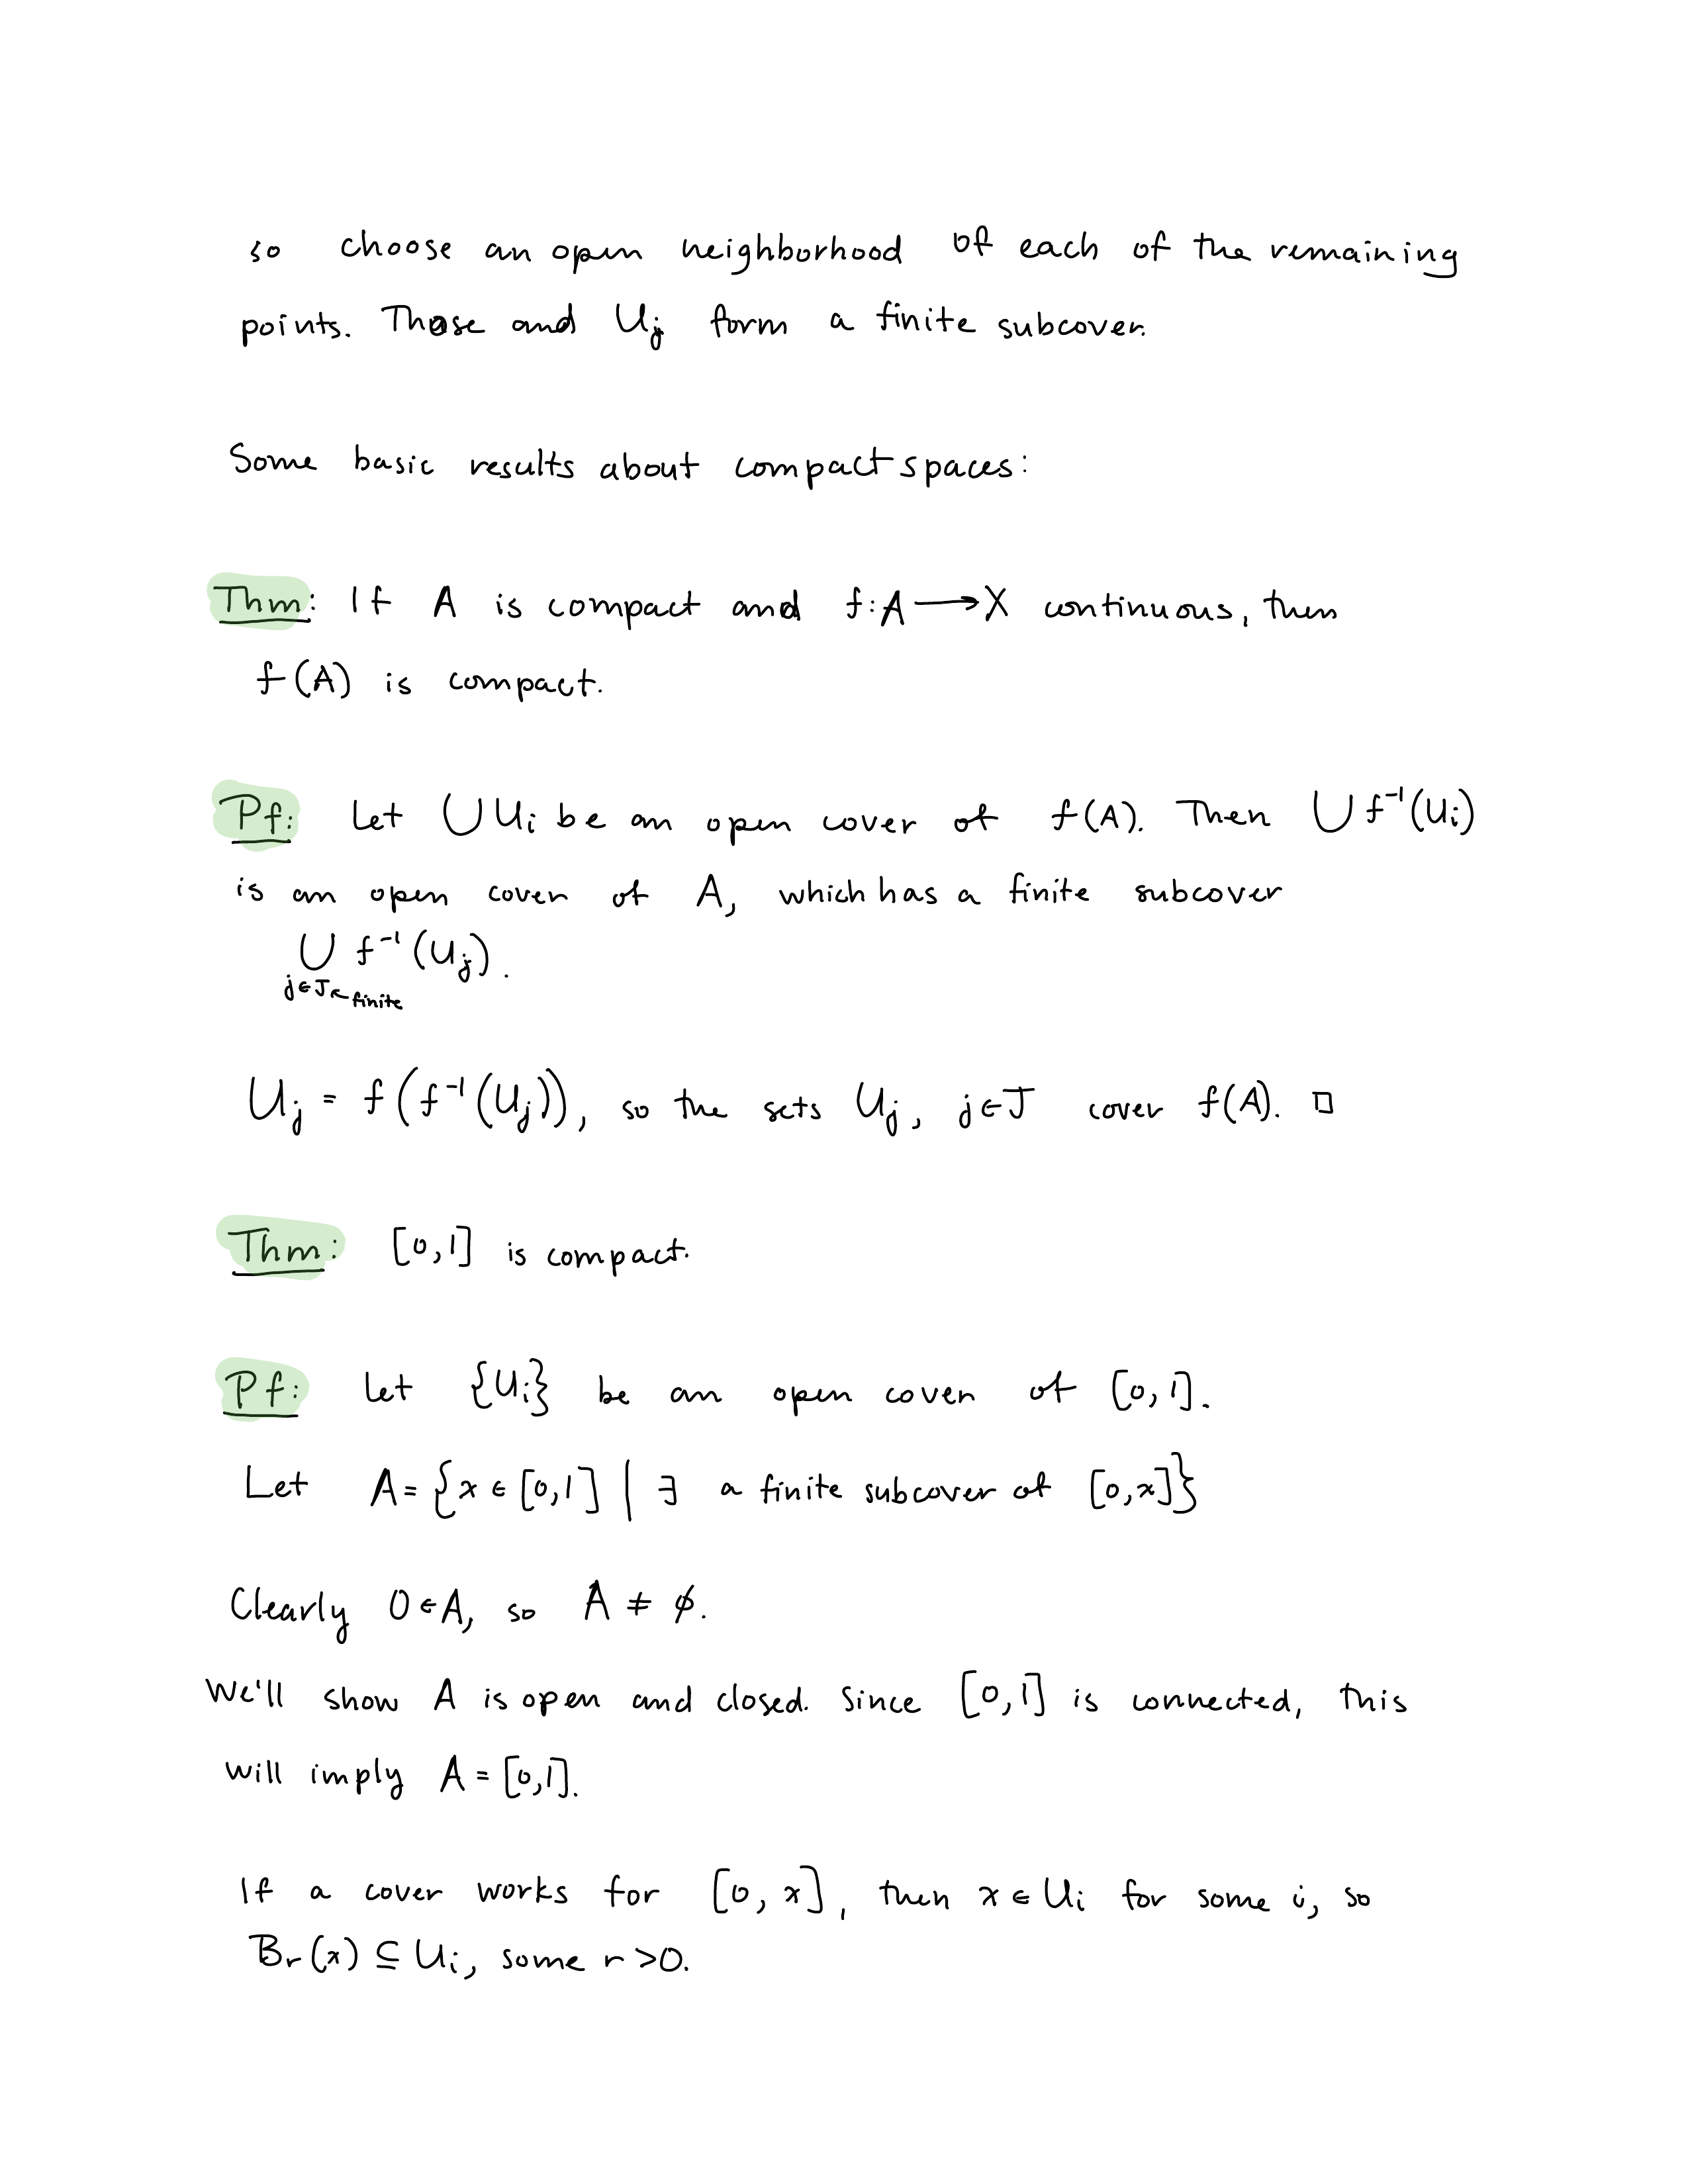 so choose an open neighborhood of each of the remaining
points. Those and Uj form a finite subcover.
Some basic results about compact spaces:
Thm: If A is compact and f: A ⟶ X continuous, then
f(A) is compact.
Pf: Let ⋃ Ui be an open cover of f(A). Then ⋃ f⁻¹(Ui)
is an open cover of A, which has a finite subcover
⋃ f⁻¹(Uj).
j∈J ← finite
Uj = f(f⁻¹(Uj)), so the sets Uj, j∈J cover f(A). □
Thm: [0,1] is compact.
Pf: Let {Ui} be an open cover of [0,1].
Let A = {x ∈ [0,1] | ∃ a finite subcover of [0,x]}
Clearly 0∈A, so A ≠ ∅.
We'll show A is open and closed. Since [0,1] is connected, this
will imply A = [0,1].
If a cover works for [0,x], then x ∈ Ui for some i, so
Br(x) ⊆ Ui, some r>0.